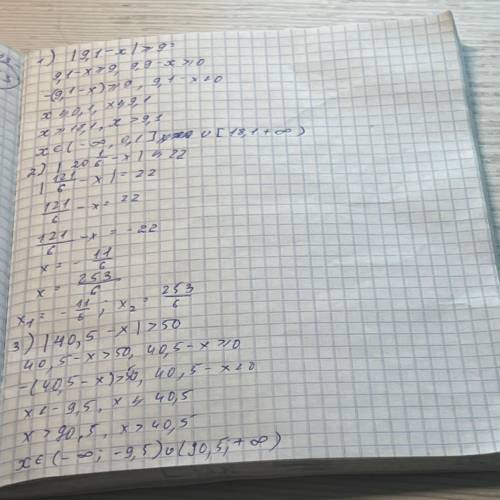 1) |9,1-x| ⩾ 9
9,1-x ⩾ 9, 9,9-x ⩾ 0
-(9,1-x) ⩾ 9, 9,1-x < 0
x ⩽ 0,1, x ⩽ 9,1
x ⩾ 18,1, x > 9,1
x ∈ (-∞, 0,1] ∪ [18,1 +∞)
2) |20 1/6 - x| = 22
|121/6 - x| = 22
121/6 - x = 22
121/6 - x = -22
x = - 11/6
x = 253/6
x₁ = - 11/6; x₂ = 253/6
3) |40,5-x| > 50
40,5-x > 50, 40,5-x ⩾ 0
-(40,5-x) > 50, 40,5-x < 0
x < -9,5, x ⩽ 40,5
x > 90,5, x > 40,5
x ∈ (-∞; -9,5) ∪ (90,5; +∞)